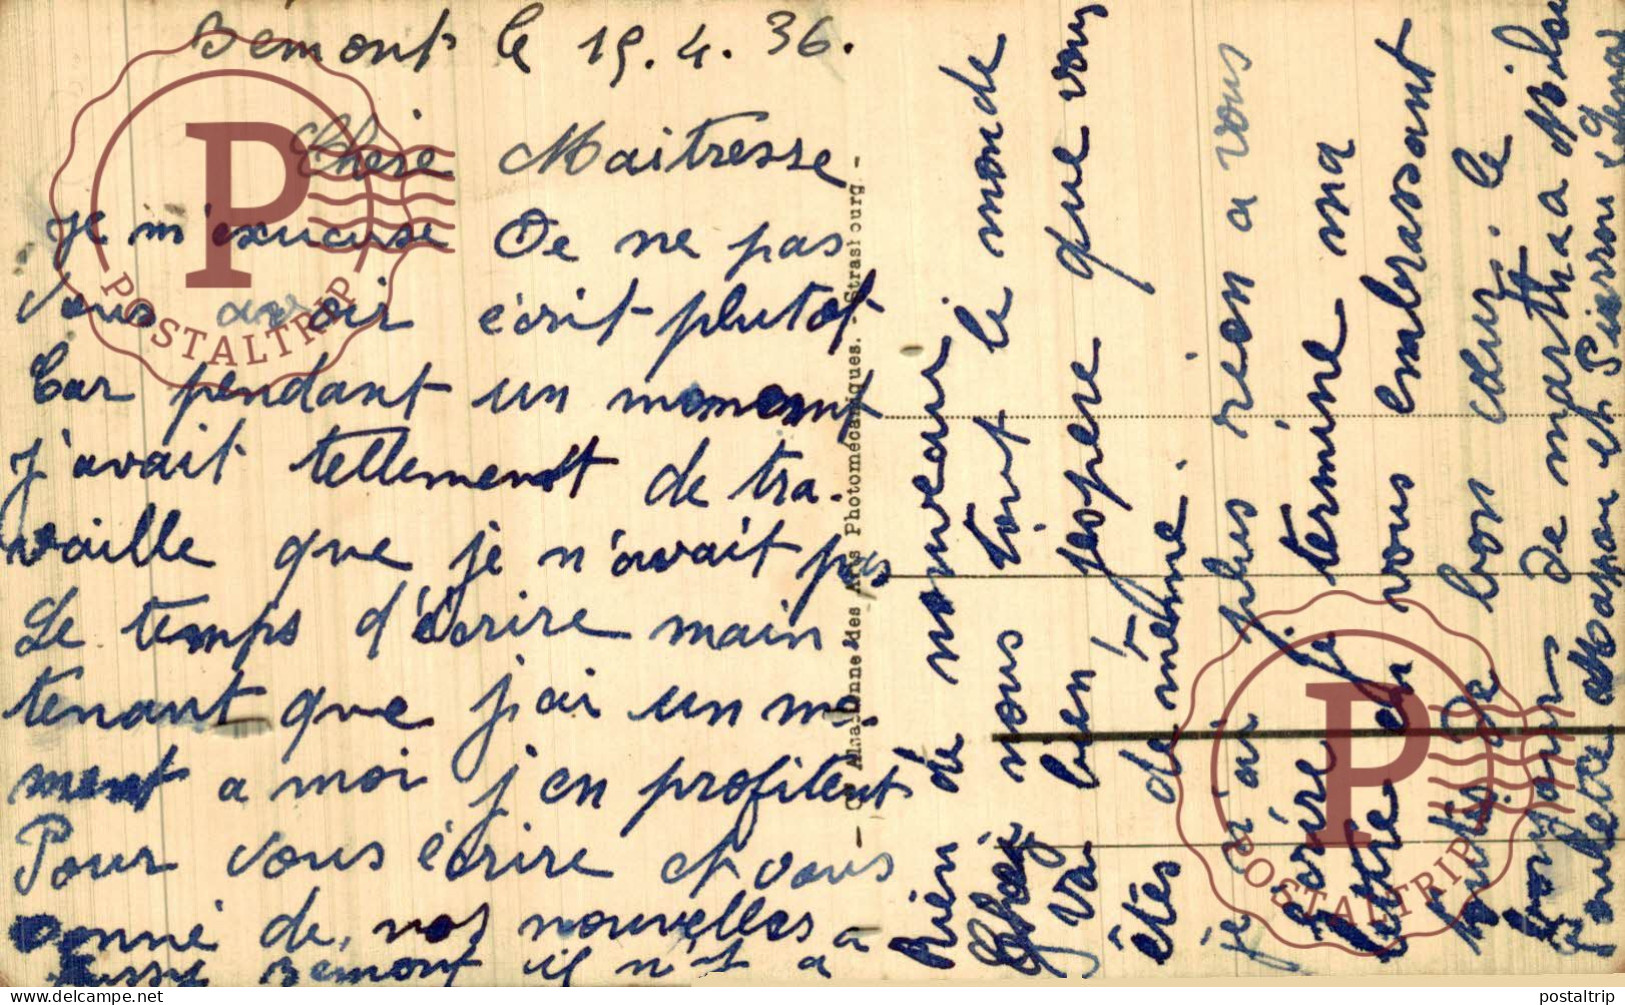 Bémont le 19.4.36.
Chère Maitresse
Je m'excuse De ne pas
vous avoir écrit plutot
Car pendant un moment
j'avait tellement de tra-
vaille que je n'avait pas
Le temps d'écrire main
tenant que j'ai un mo-
ment a moi j'en profitent
Pour vous écrire et vous
donné de vos nouvelles a
Aussi Bemont il n'it a
Rien de nouveau
Chez nous tout le monde
Va bien j'espere que vous
êtes de même.
je n'ai plus rien a vous
écrire je termine ma
lettre en vous embrassant
toutes De bon cœur. le
bonjour de martha a
Paulette Masson et Pierron
C. Alsabonne & des Arts Photomécaniques. - Strasbourg. -
P
POSTALTRIP
P
POSTALTRIP
delcampe.net
postaltrip